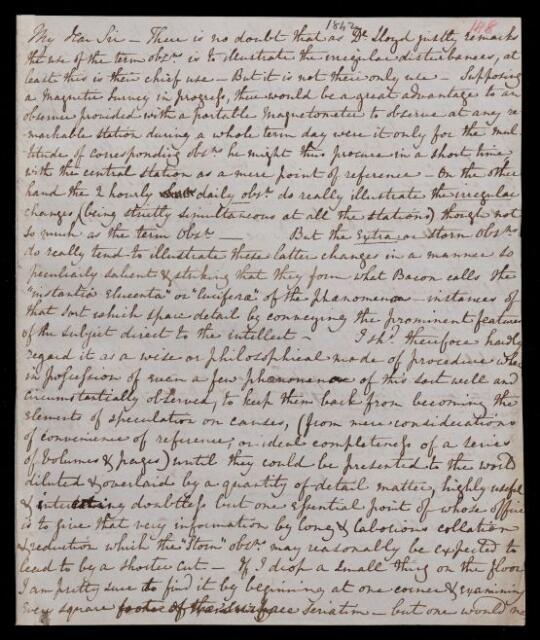 1842
148
My dear Sir — There is no doubt that as Dr Lloyd justly remarks
the use of the term obsns. is to illustrate the irregular disturbances, at
least this is their chief use — But it is not their only use — Supposing
a Magnetic Survey in progress, there would be a great advantage to an
observer provided with a portable Magnetometer to observe at any re
markable station during a whole term day were it only for the mul
titude of corresponding obsns. he might thus procure in a short time
with the central station as a mere point of reference — On the other
hand the 2 hourly daily obsns. do really illustrate the irregular
changes, (being strictly simultaneous at all the stations) though not
so much as the term Obsns. — But the Extra or Storm Obsns.
do really tend to illustrate these latter changes in a manner so
peculiarly salient & striking that they form what Bacon calls the
"instantia elucentia" or "lucifera" of the phænomenon — instances of
that sort which spare detail by conveying the prominent features
of the subject direct to the intellect — I shd. therefore hardly
regard it as a wise or philosophical mode of procedure when
in possession of even a few phænomena of this sort well and
circumstantially observed, to keep them back from becoming the
elements of speculation on causes, (from mere considerations
of convenience of reference, or ideal completeness of a series
of Volumes & pages) until they could be presented to the world
diluted & overlaid by a quantity of detail matter, highly useful
& interesting doubtless but one essential point of whose office
is to give that very information by long & laborious collation
& reduction which the "Storm" obsns. may reasonably be expected to
lead to by a shorter cut — If I drop a small thing on the floor
I am pretty sure to find it by beginning at one corner & examining
every square seriatim — but one would